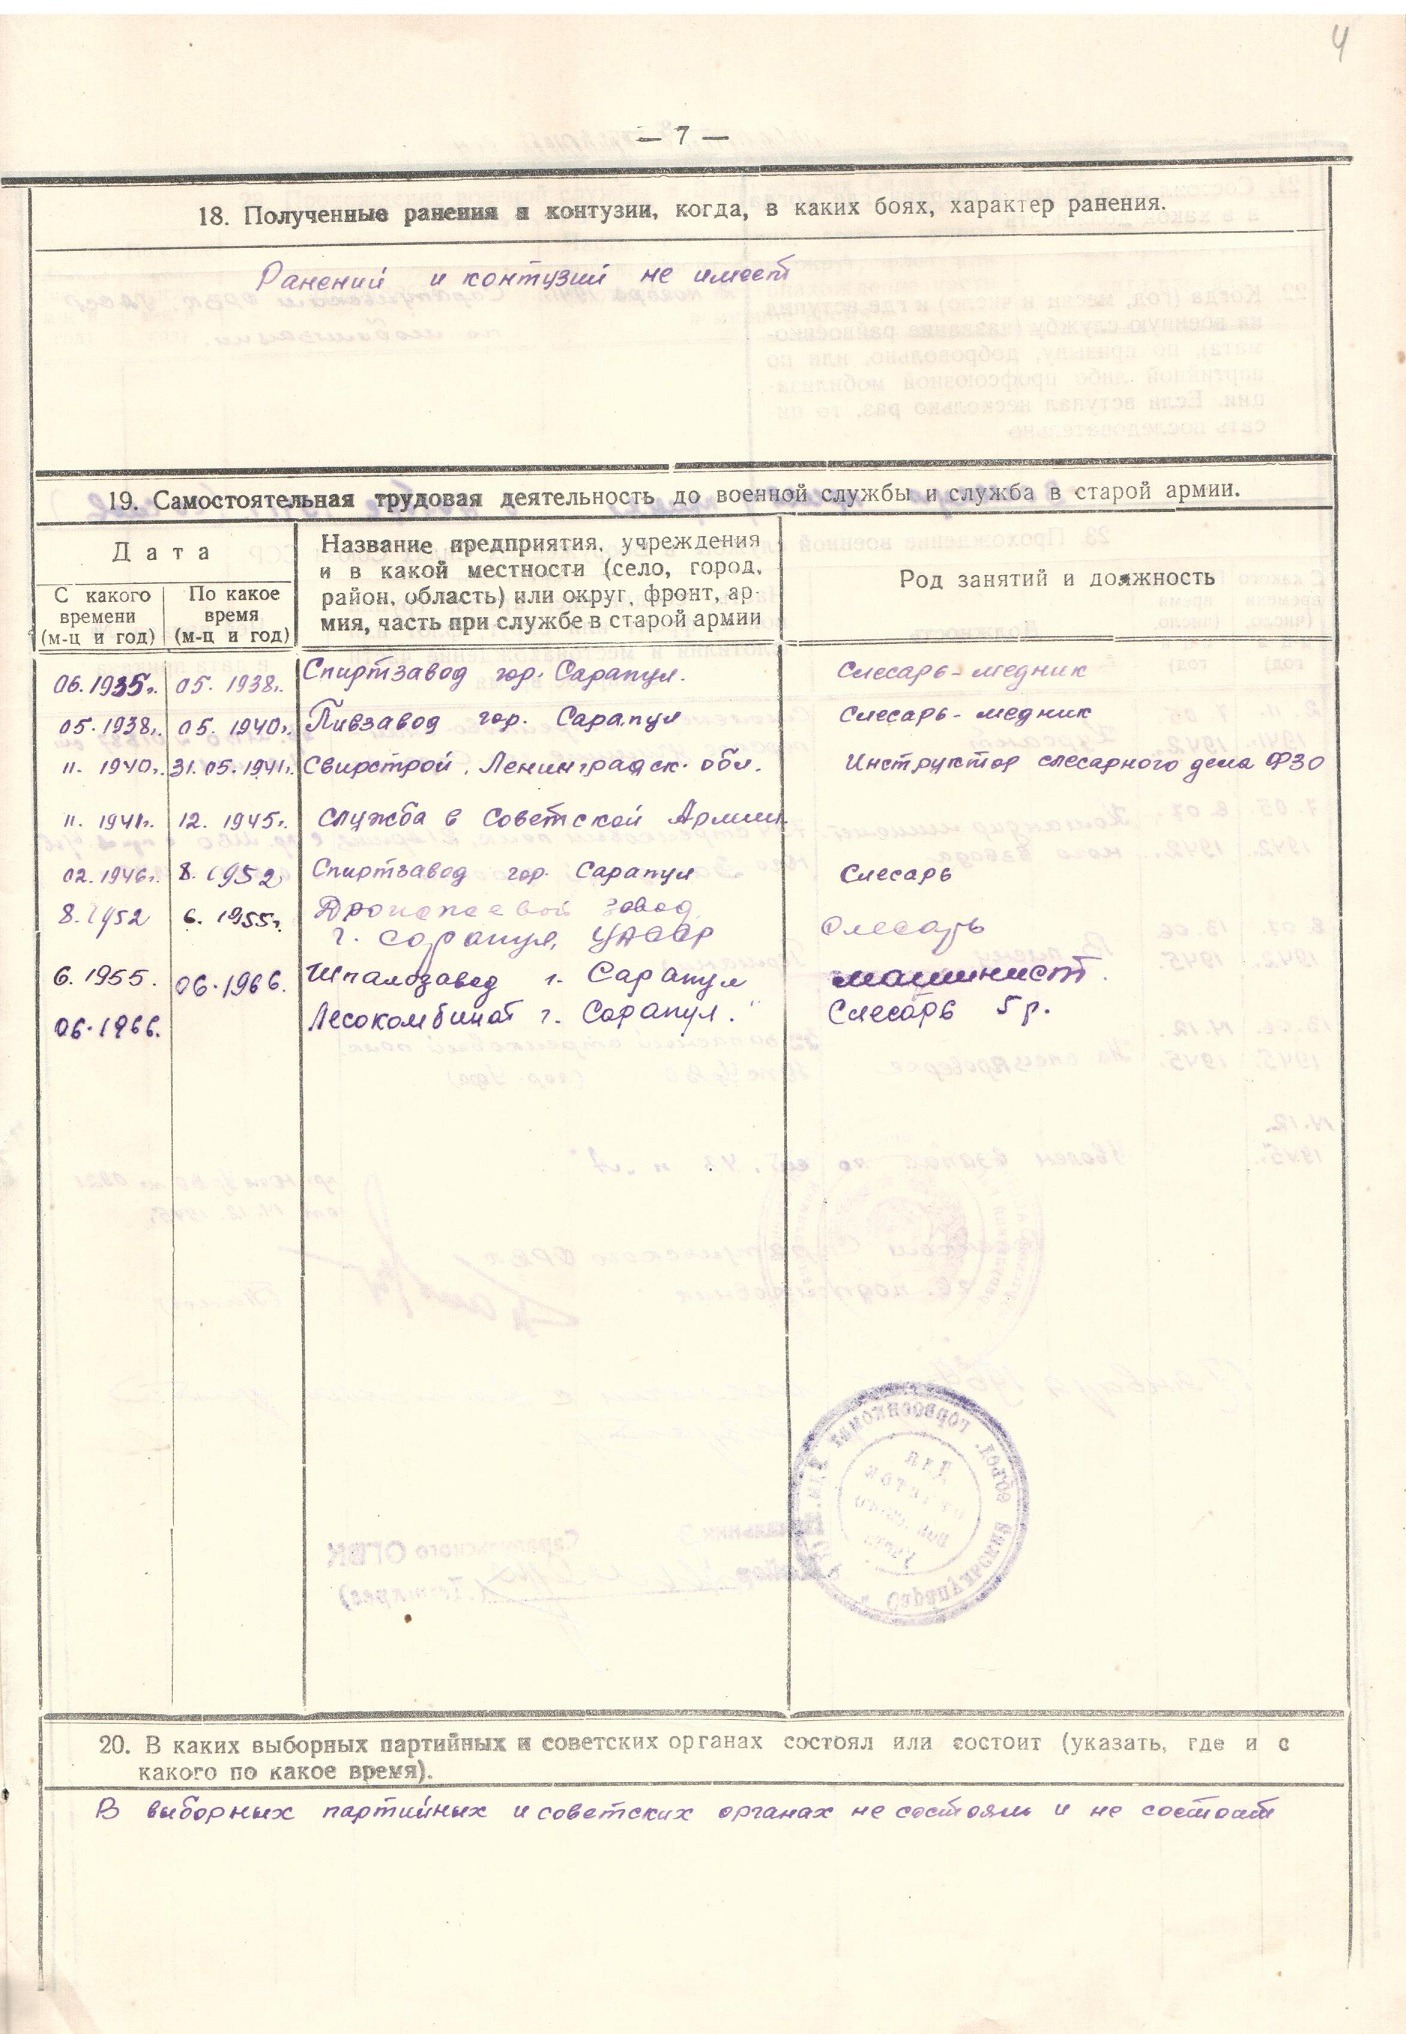 4
— 7 —
18. Полученные ранения и контузии, когда, в каких боях, характер ранения.
Ранений и контузий не имеет
19. Самостоятельная трудовая деятельность до военной службы и служба в старой армии.
Дата
С какого времени (м-ц и год)
По какое время (м-ц и год)
Название предприятия, учреждения
и в какой местности (село, город,
район, область) или округ, фронт, ар-
мия, часть при службе в старой армии
Род занятий и должность
06.1935г. 05.1938г. Спиртзавод гор. Сарапул. Слесарь-медник
05.1938г. 05.1940г. Пивзавод гор. Сарапул Слесарь-медник
11.1940г. 31.05.1941г. Свирстрой, Ленинградск. обл. Инструктор слесарного дела ФЗО
11.1941г. 12.1945г. Служба в Советской Армии
02.1946г. 8.1952 Спиртзавод гор. Сарапул Слесарь
8.1952 6.1955г. завод
г. Сарапул, УАССР Слесарь
6.1955. 06.1966. Шпалозавод г. Сарапул машинист.
06.1966. Лесокомбинат г. Сарапул. Слесарь 5р.
20. В каких выборных партийных и советских органах состоял или состоит (указать, где и с
какого по какое время).
В выборных партийных и советских органах не состоял и не состоит